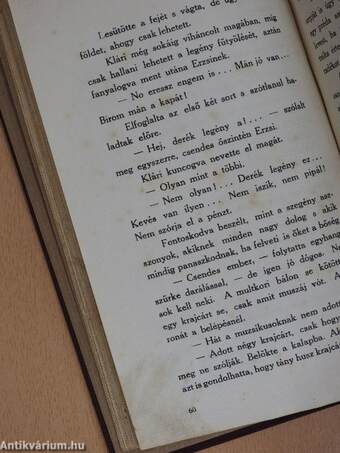 Lesütötte a fejét s vágta, de úgy
földet, ahogy csak lehetett.
Klári még sokáig viháncolt magában, mig
csak hallani lehetett a legény fütyölését, aztán
fanyalogva ment utána Erzsinek.
— No eressz engem is... Mán jó van...
Birom mán a kapát!
Elfoglalta az első két sort s szótlanul ha-
ladtak előre.
— Hej, derék legény a!... — szólalt
meg egyszerre, csendes őszintén Erzsi.
Klári kuncogva nevette el magát.
— Olyan mint a többi.
— Nem olyan!... Derék legény ez...
Kevés van ilyen... Nem iszik, nem pipál!
Nem szórja el a pénzt.
Fontoskodva beszélt, mint a szegény asz-
szonyok, akiknek minden nagy dolog s akik
mindig panaszkodnak, ha felveti is őket a bőség
— Csendes ember, — folytatta egyhang
szürke darálással, — de igen jó dógos. Ne
sok kell neki. A multkori bálon se kötött
egy krajcárt se, csak amit muszáj vót. A
ronát a belépésnél.
— Hát a muzsikusoknak csak
— Adott négy krajcárt, csak hogy
meg ne szólják. Belökte a kalapba. Ak
azt is gondolhatta, hogy tány husz krajcár
60
Antikvárium.hu